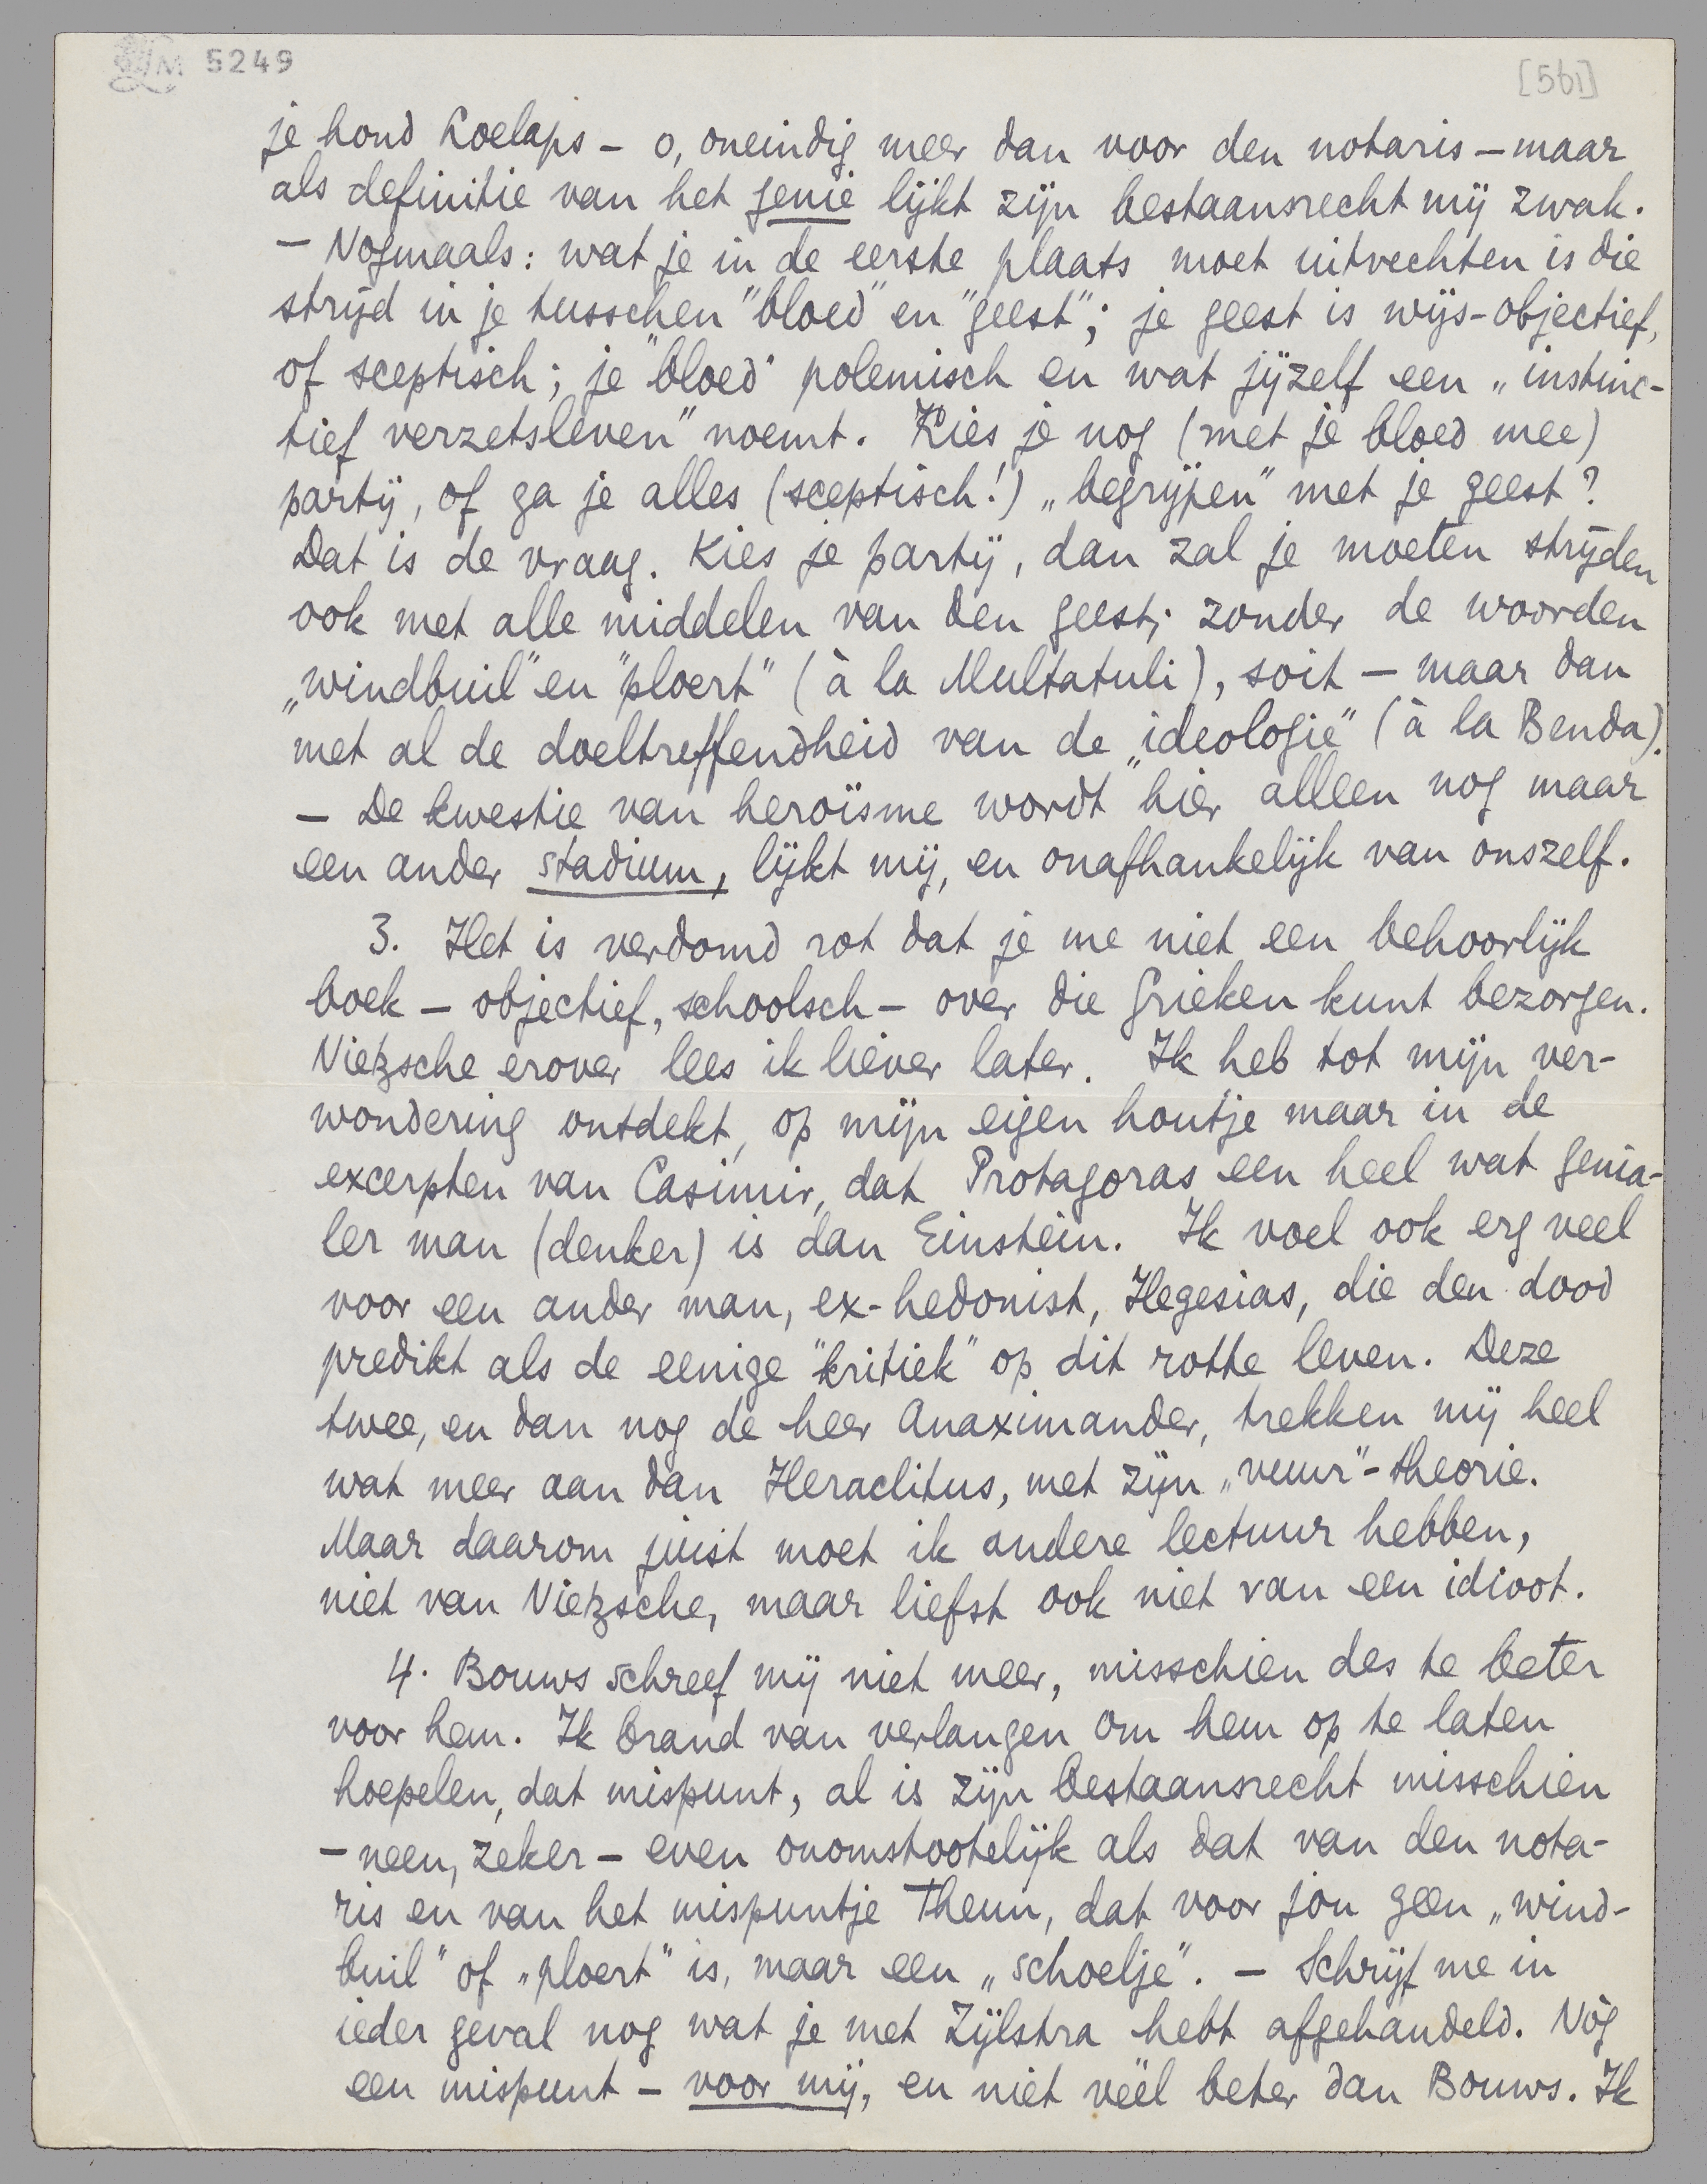 LM 5249
[561]
je hond Koelaps – o, oneindig meer dan voor den notaris – maar
als definitie van het genie lijkt zijn bestaansrecht mij zwak.
– Nogmaals: wat je in de eerste plaats moet uitvechten is die
strijd in je tusschen "bloed" en "geest"; je geest is wijs-objectief,
of sceptisch; je "bloed" polemisch en wat jijzelf een „instinc-
tief verzetsleven" noemt. Kies je nog (met je bloed mee)
partij, of ga je alles (sceptisch!) „begrijpen" met je geest?
Dat is de vraag. Kies je partij, dan zal je moeten strijden
ook met alle middelen van den geest; zonder de woorden
„windbuil" en "ploert" (à la Multatuli), soit – maar dan
met al de doeltreffendheid van de „ideologie" (à la Benda).
– De kwestie van heroïsme wordt hier alleen nog maar
een ander stadium, lijkt mij, en onafhankelijk van onszelf.
3. Het is verdomd rot dat je me niet een behoorlijk
boek – objectief, schoolsch – over die Grieken kunt bezorgen.
Nietzsche erover lees ik liever later. Ik heb tot mijn ver-
wondering ontdekt, op mijn eigen houtje maar in de
excerpten van Casimir, dat Protagoras een heel wat genia-
ler man (denker) is dan Einstein. Ik voel ook erg veel
voor een ander man, ex-hedonist, Hegesias, die den dood
predikt als de eenige "kritiek" op dit rotte leven. Deze
twee, en dan nog de heer Anaximander, trekken mij heel
wat meer aan dan Heraclitus, met zijn „vuur"-theorie.
Maar daarom juist moet ik andere lectuur hebben,
niet van Nietzsche, maar liefst ook niet van een idioot.
4. Bouws schreef mij niet meer, misschien des te beter
voor hem. Ik brand van verlangen om hem op te laten
hoepelen, dat mispunt, al is zijn bestaansrecht misschien
– neen, zeker – even onomstootelijk als dat van den nota-
ris en van het mispuntje Theun, dat voor jou geen „wind-
buil" of „ploert" is, maar een „schoelje". – Schrijf me in
ieder geval nog wat je met Zijlstra hebt afgehandeld. Nòg
een mispunt – voor mij, en niet véél beter dan Bouws. Ik